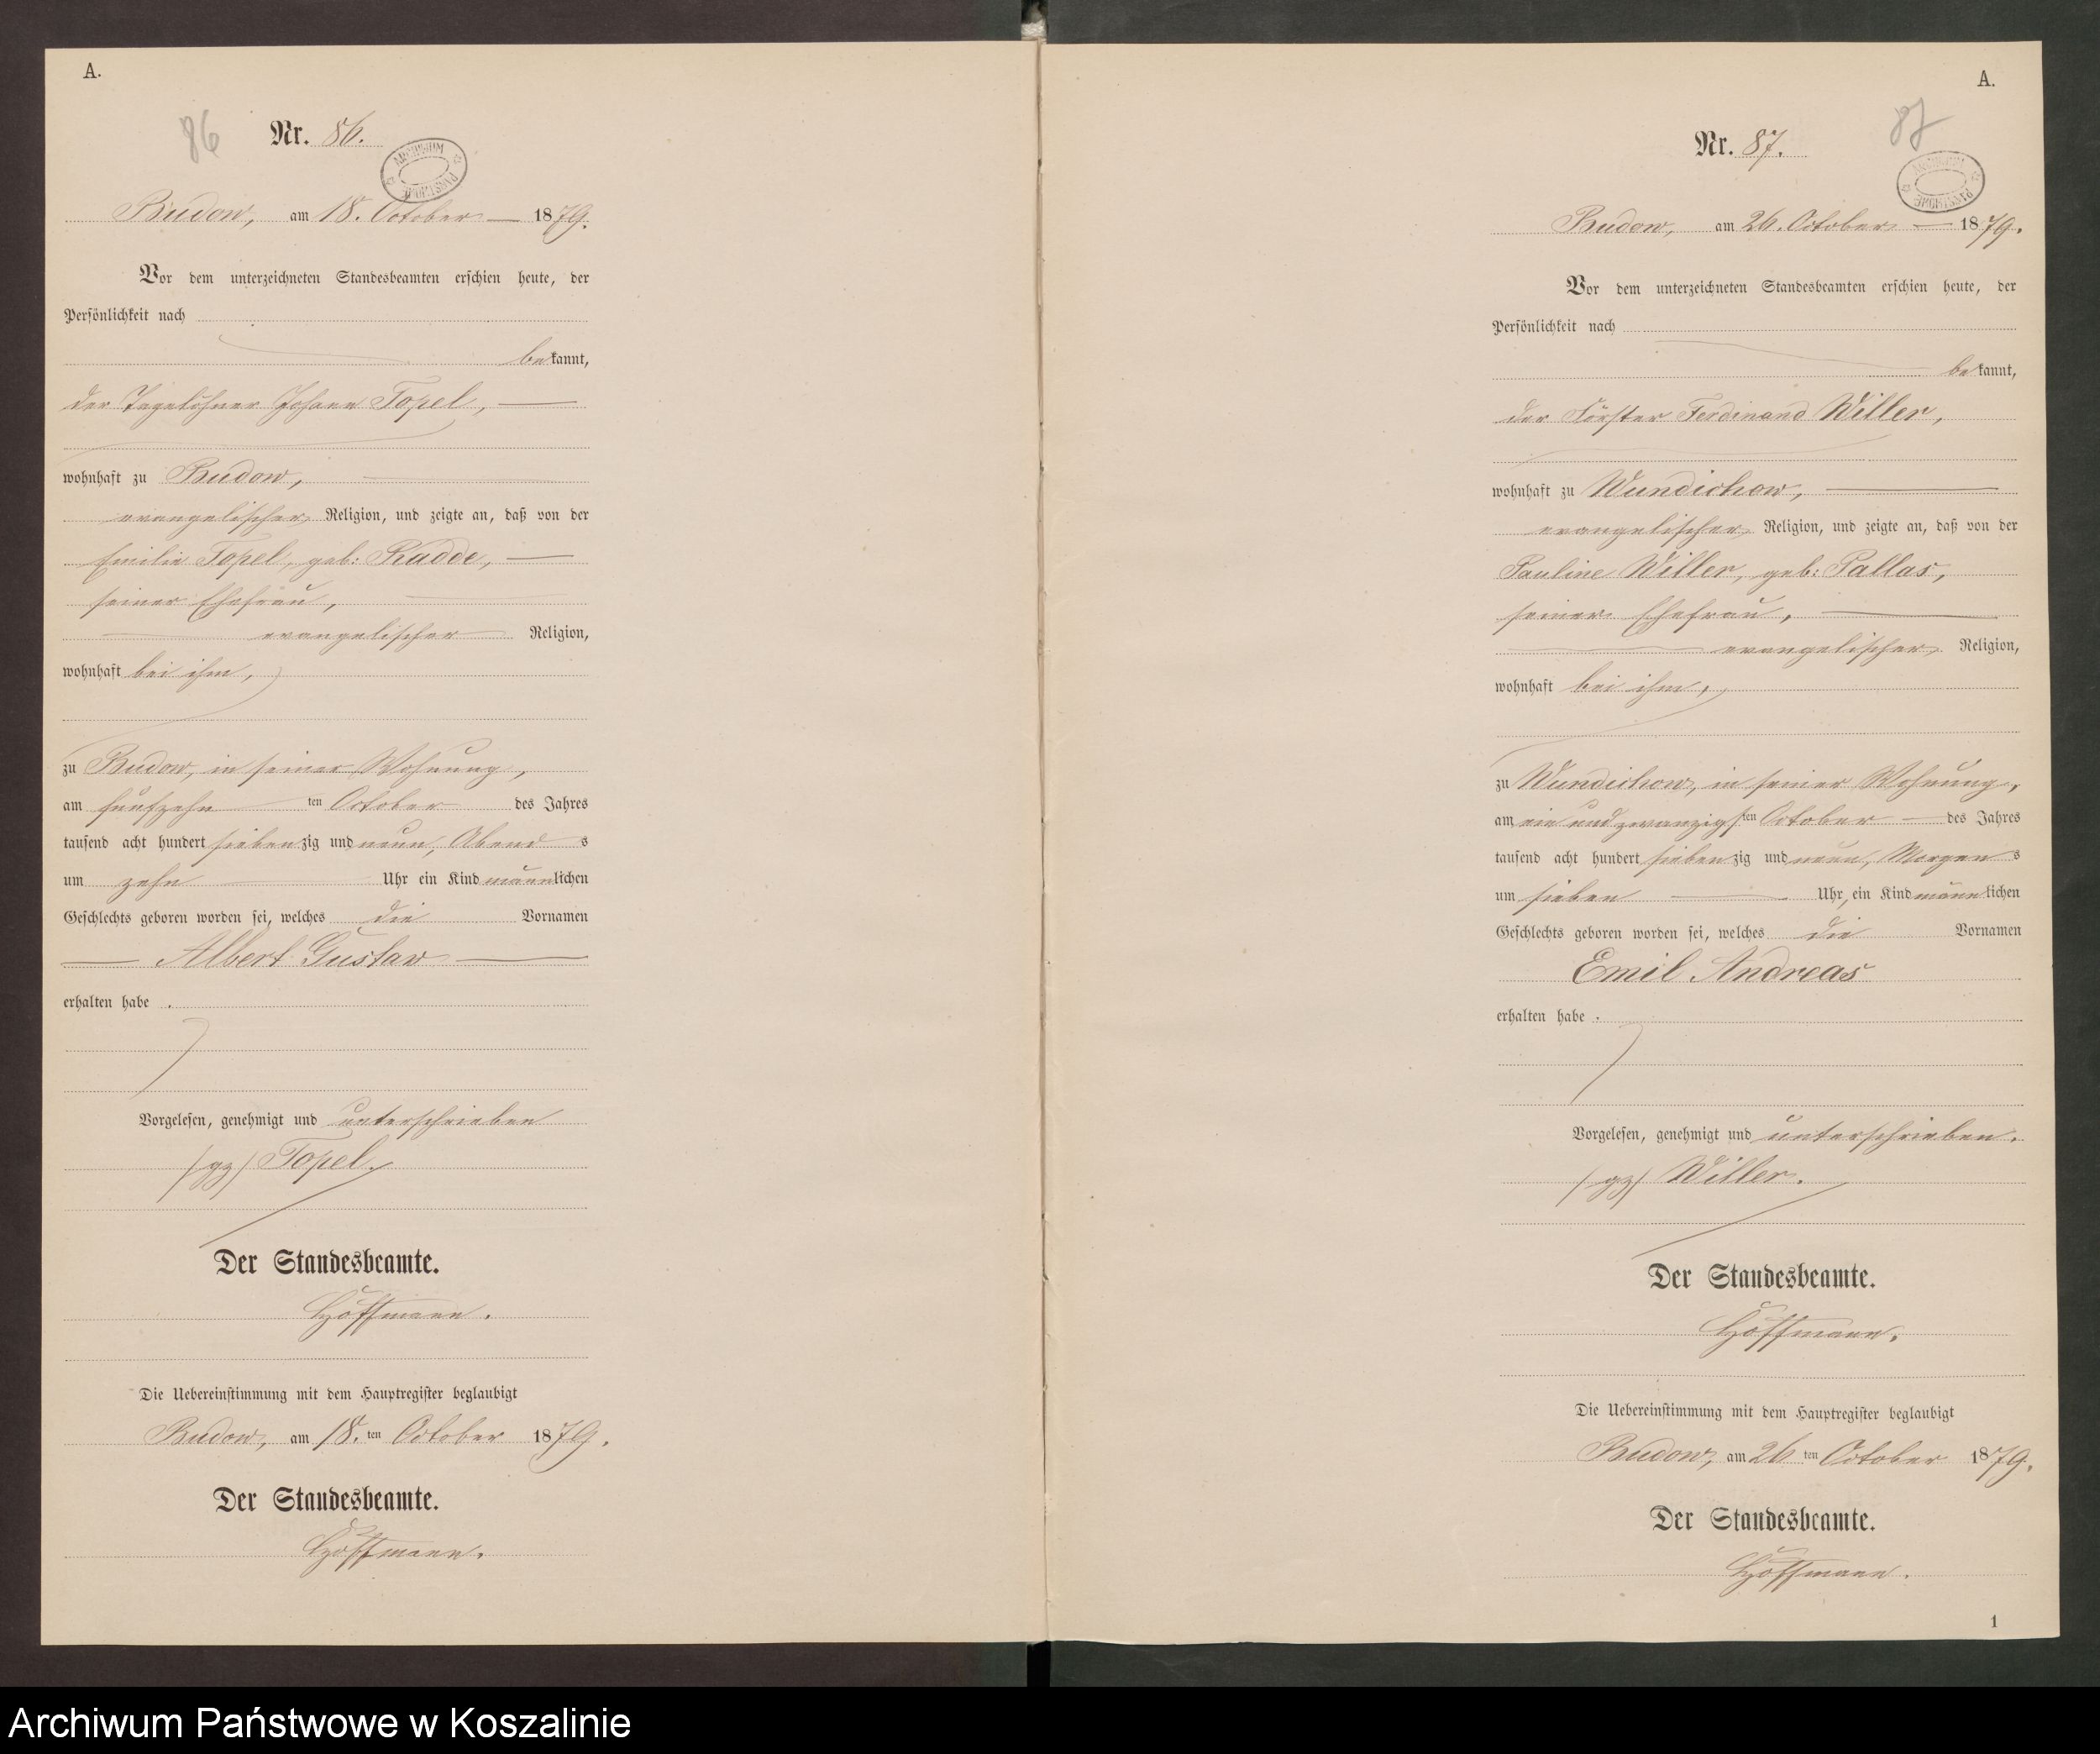 A.
86
Nr. 86.
ARCHIWUM PAŃSTWOWE
Budow, am 18. October 1879.
Vor dem unterzeichneten Standesbeamten erschien heute, der
Persönlichkeit nach
bekannt,
der Tagelöhner Johann Topel,
wohnhaft zu Budow,
evangelischer Religion, und zeigte an, daß von der
Emilie Topel, geb: Radde,
seiner Ehefrau,
evangelischer Religion,
wohnhaft bei ihm,
zu Budow, in seiner Wohnung,
am fünfzehn ten October des Jahres
tausend acht hundert siebenzig und neun, Abends
um zehn Uhr ein Kind männlichen
Geschlechts geboren worden sei, welches die Vornamen
Albert Gustav
erhalten habe.
Vorgelesen, genehmigt und unterschrieben
/gz/ Topel.
Der Standesbeamte.
Hoffmann.
Die Uebereinstimmung mit dem Hauptregister beglaubigt
Budow, am 18. ten October 1879.
Der Standesbeamte.
Hoffmann.
A.
87
Nr. 87.
ARCHIWUM PAŃSTWOWE
Budow, am 26. October 1879.
Vor dem unterzeichneten Standesbeamten erschien heute, der
Persönlichkeit nach
bekannt,
der Förster Ferdinand Willer,
wohnhaft zu Wundichow,
evangelischer Religion, und zeigte an, daß von der
Pauline Willer, geb: Pallas,
seiner Ehefrau,
evangelischer Religion,
wohnhaft bei ihm,
zu Wundichow, in seiner Wohnung,
am ein und zwanzigsten October des Jahres
tausend acht hundert siebenzig und neun, Morgens
um sieben Uhr, ein Kind männlichen
Geschlechts geboren worden sei, welches die Vornamen
Emil Andreas
erhalten habe.
Vorgelesen, genehmigt und unterschrieben.
/gz/ Willer.
Der Standesbeamte.
Hoffmann.
Die Uebereinstimmung mit dem Hauptregister beglaubigt
Budow, am 26 ten October 1879.
Der Standesbeamte.
Hoffmann.
1
Archiwum Państwowe w Koszalinie